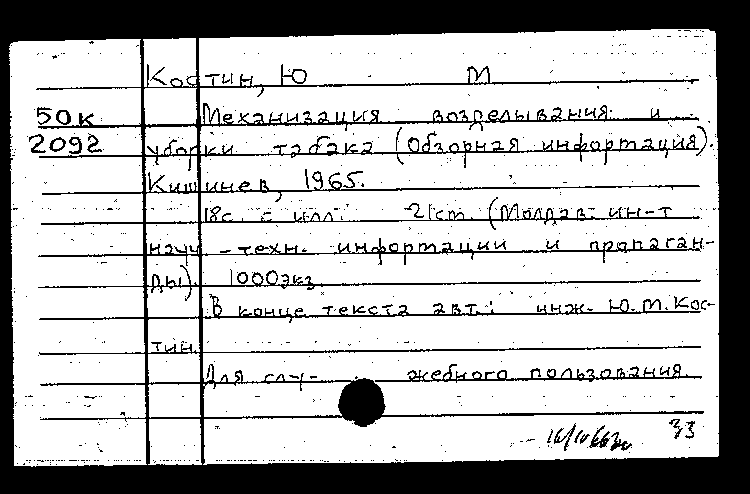 Костин, Ю М
50к Механизация возделывания и
2092 уборки табака (Обзорная информация).
Кишинев, 1965.
18с. с илл. 21см. (Молдав. ин-т
науч.-техн. информации и пропаган-
ды). 1000экз.
В конце текста авт.: инж. Ю.М.Кос-
тин.
Для слу- жебного пользования.
33